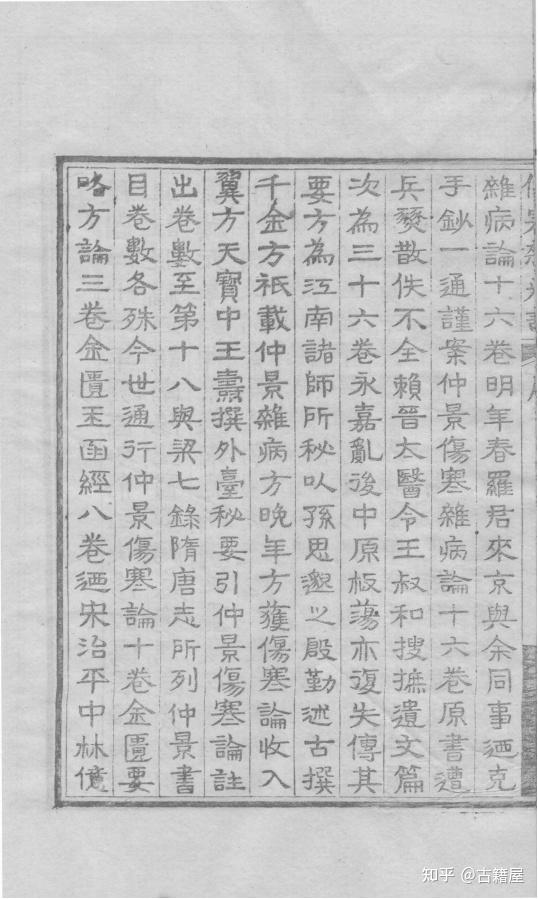 雜病論十六卷明年春羅君來京與余同事迺克
手鈔一通謹案仲景傷寒雜病論十六卷原書遭
兵燹散佚不全賴晉太醫令王叔和搜摭遺文篇
次為三十六卷永嘉亂後中原板蕩亦復失傳其
要方為江南諸師所秘以孫思邈之殷勤述古撰
千金方祇載仲景雜病方晚年方獲傷寒論收入
翼方天寶中王燾撰外臺秘要引仲景傷寒論註
出卷數至第十八與梁七錄隋唐志所列仲景書
目卷數各殊今世通行仲景傷寒論十卷金匱要
略方論三卷金匱玉函經八卷迺宋治平中林億
知乎 @古籍屋